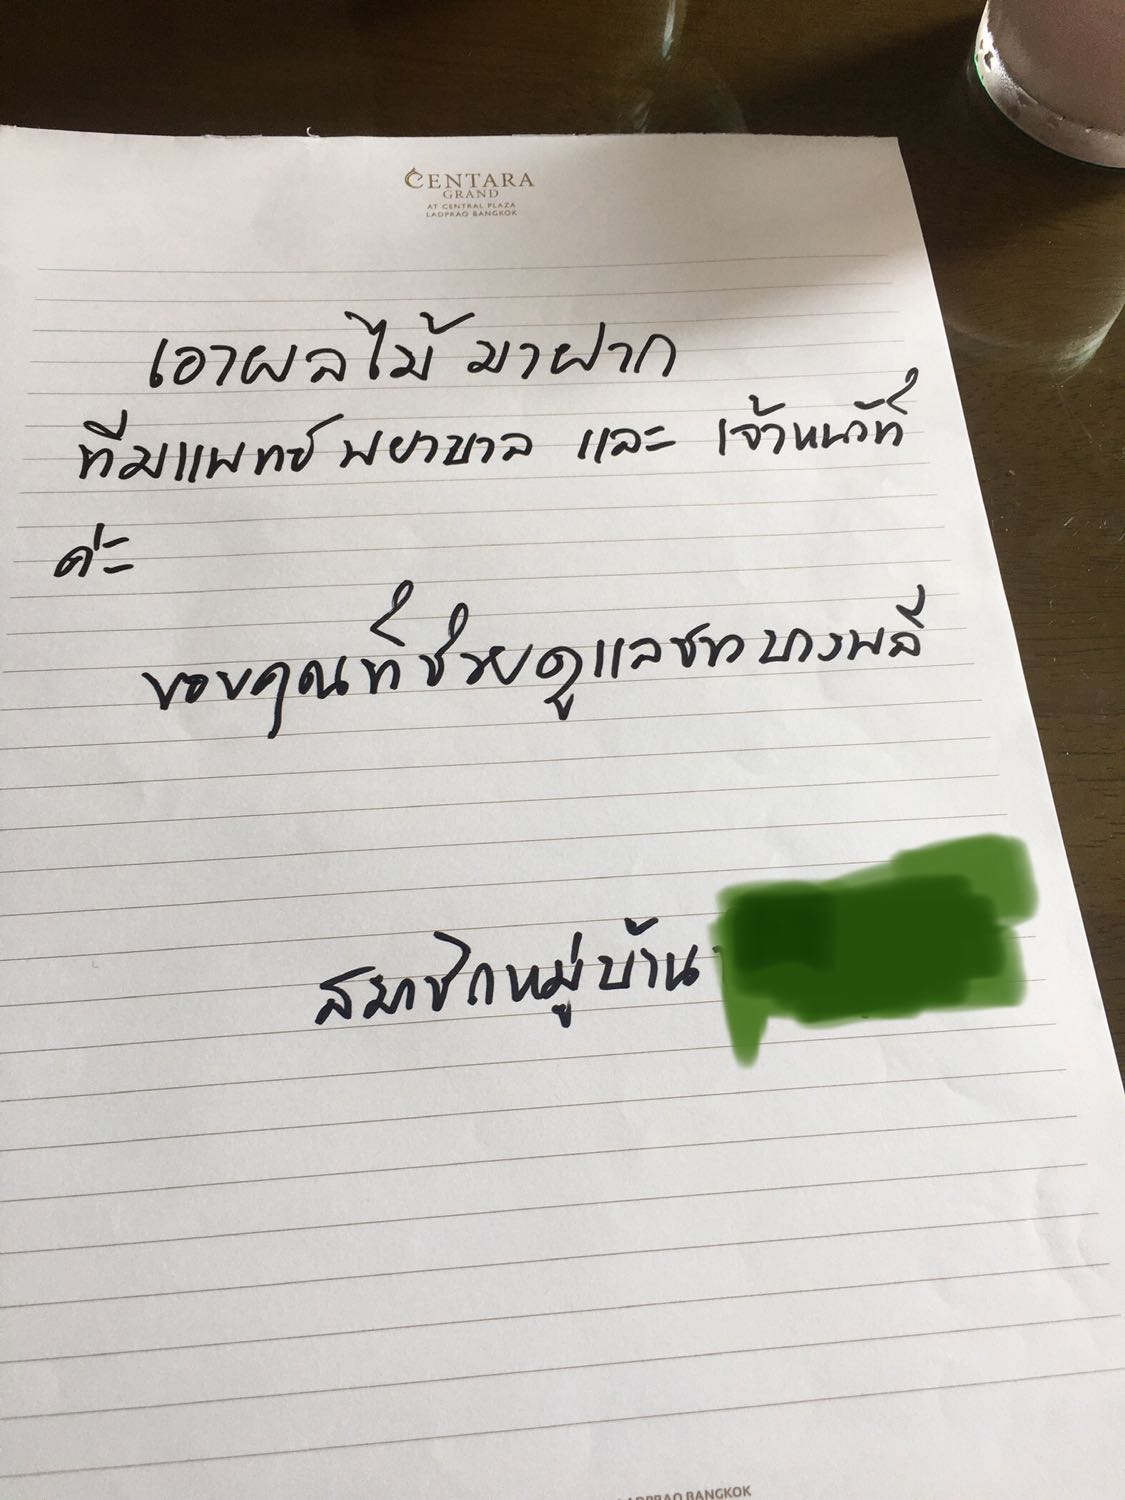 CENTARA
GRAND
AT CENTRAL PLAZA
LADPRAO BANGKOK
เอาผลไม้ มาฝาก
ทีมแพทย์ พยาบาล และ เจ้าหน้าที่
ค่ะ
ขอบคุณที่ช่วยดูแลชาวบางพลี
สมาชิกหมู่บ้าน
LADPRAO BANGKOK